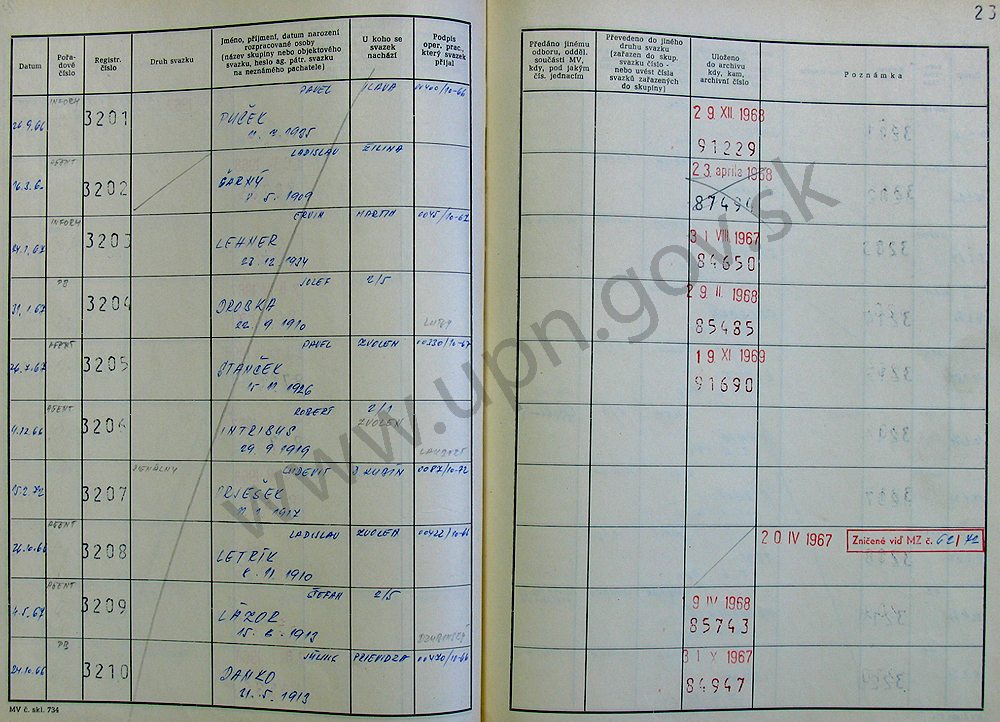 23
Datum
Pořa-
dové
číslo
Registr.
číslo
Druh svazku
Jméno, příjmení, datum narození
rozpracované osoby
(název skupiny nebo objektového
svazku, heslo ag. pátr. svazku
na neznámého pachatele)
U koho se
svazek
nachází
Podpis
oper. prac.,
který svazek
přijal
Předáno jinému
odboru, odděl.
součásti MV,
kdy, pod jakým
čís. jednacím
Převedeno do jiného
druhu svazku
(zařazen do skup.
svazku číslo -
nebo uvést čísla
svazků zařazených
do skupiny)
Uloženo
do archivu
kdy, kam,
archivní číslo
Poznámka
INFORM PAVEL ILAVA 00400/10-66
26.9.66 3201 PUČEK
29 XII. 1968
91229
AGENT LADISLAV ŽILINA
3202 ŠARNÝ
5. 1909
23. apríla 1968
87494
INFORM ERVIN MARTIN 0045/10-67
24.1.67 3203 LEHNER
23.12.1924
31 VIII. 1967
84650
PB JOZEF 2/5
31.1.67 3204 DROBKA
22.9.1910
29. II. 1968
85485
AGENT PAVEL ZVOLEN 00330/10-67
26.7.67 3205 STANČEK
15.11.1926
19 XI 1969
91690
AGENT ROBERT 2/1
ZVOLEN
4.12.66 3206 INTRIBUS
29.9.1919
SIGNÁLNY ĽUDEVIT D. KUBÍN 0087/10-72
15.2.72 3207
1917
AGENT LADISLAV ZVOLEN 00422/10-66
26.10.66 3208 LETRÍK
8.11.1910
20 IV 1967
Zničené viď MZ č. 62/72
AGENT ŠTEFAN 2/5
4.5.67 3209 LÁZOR
15.6.1913
9 IV 1968
85743
PB PRIEVIDZA 00470/10-66
24.10.66 3210 DANKO
21.5.1913
31 X 1967
84947
MV č. skl. 734
www.upn.gov.sk